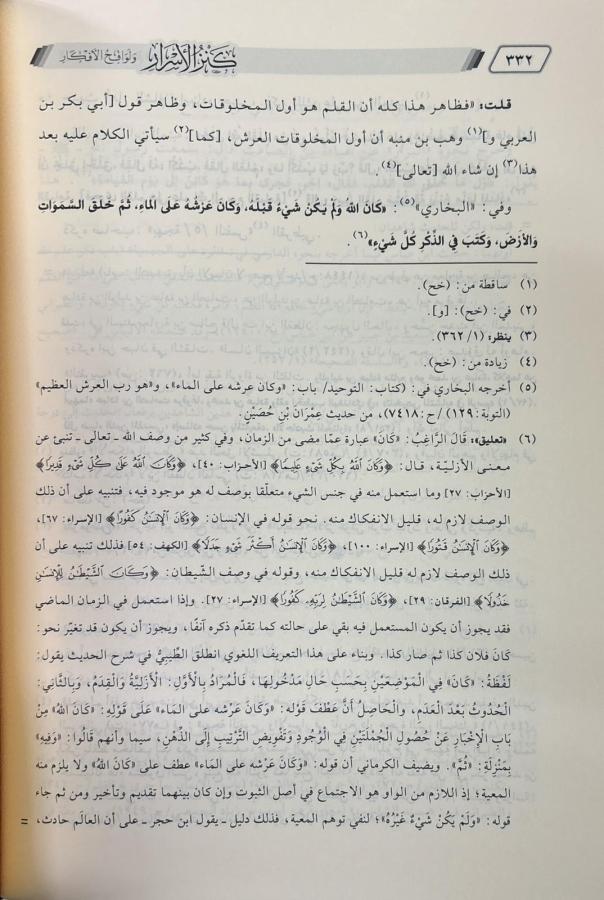 ٣٣٢
كنز الأسرار ولواقح الأفكار
قلت: «فظاهر هذا كله أن القلم هو أول المخلوقات، وظاهر قول [أبي بكر بن
العربي و](١) وهب بن منبه أن أول المخلوقات العرش، [كما](٢) سيأتي الكلام عليه بعد
هذا(٣) إن شاء الله [تعالى](٤).
وفي: «البخاري»(٥): «كَانَ اللهُ وَلَمْ يَكُنْ شَيْءٌ قَبْلَهُ، وَكَانَ عَرْشُهُ عَلَى المَاءِ، ثُمَّ خَلَقَ السَّمَوَاتِ
وَالأَرْضَ، وَكَتَبَ فِي الذِّكْرِ كُلَّ شَيْءٍ»(٦).
(١) ساقطة من: (خح).
(٢) في: (خح): [و].
(٣) ينظر: (١/ ٣٦٢).
(٤) زيادة من: (خح).
(٥) أخرجه البخاري في: (كتاب: التوحيد/ باب: «وكان عرشه على الماء»، «وهو رب العرش العظيم»
(التوبة: ١٢٩)/ ح: ٧٤١٨)، من حديث عِمْرَانَ بْنِ حُصَيْنٍ.
(٦) «تعليق»: قَالَ الرَّاغِبُ: «كَانَ» عبارة عمّا مضى من الزمان، وفي كثير من وصف الله ـ تعالى ـ تنبئ عن
معنى الأزليّة، قال: ﴿وَكَانَ ٱللَّهُ بِكُلِّ شَيْءٍ عَلِيمًا﴾ [الأحزاب: ٤٠]، ﴿وَكَانَ ٱللَّهُ عَلَىٰ كُلِّ شَيْءٍ قَدِيرًا﴾
[الأحزاب: ٢٧] وما استعمل منه في جنس الشيء متعلّقا بوصف له هو موجود فيه، فتنبيه على أن ذلك
الوصف لازم له، قليل الانفكاك منه. نحو قوله في الإنسان: ﴿وَكَانَ ٱلْإِنسَٰنُ كَفُورًا﴾ [الإسراء: ٦٧]،
﴿وَكَانَ ٱلْإِنسَٰنُ قَتُورًا﴾ [الإسراء: ١٠٠]، ﴿وَكَانَ ٱلْإِنسَٰنُ أَكْثَرَ شَيْءٍ جَدَلًا﴾ [الكهف: ٥٤] فذلك تنبيه على أن
ذلك الوصف لازم له قليل الانفكاك منه، وقوله في وصف الشّيطان: ﴿وَكَانَ ٱلشَّيْطَٰنُ لِلْإِنسَٰنِ
خَذُولًا﴾ [الفرقان: ٢٩]، ﴿وَكَانَ ٱلشَّيْطَٰنُ لِرَبِّهِۦ كَفُورًا﴾ [الإسراء: ٢٧]. وإذا استعمل في الزمان الماضي
فقد يجوز أن يكون المستعمل فيه بقي على حالته كما تقدّم ذكره آنفًا، ويجوز أن يكون قد تغيّر نحو:
كَانَ فلان كذا ثم صار كذا. وبناء على هذا التعريف اللغوي انطلق الطِّيبِيُّ في شرح الحديث يقول:
لَفْظَةُ: «كَانَ» فِي الْمَوْضِعَيْنِ بِحَسَبِ حَالِ مَدْخُولِهَا، فَالْمُرَادُ بِالْأَوَّلِ: الْأَزَلِيَّةُ وَالْقِدَمُ، وَبِالثَّانِي:
الْحُدُوثُ بَعْدَ الْعَدَمِ، وَالْحَاصِلُ أَنَّ عَطْفَ قَوْلِهِ: «وَكَانَ عَرْشُهُ عَلَى الْمَاءِ» عَلَى قَوْلِهِ: «كَانَ اللهُ» مِنْ
بَابِ الْإِخْبَارِ عَنْ حُصُولِ الْجُمْلَتَيْنِ فِي الْوُجُودِ وَتَفْوِيضِ التَّرْتِيبِ إِلَى الذِّهْنِ، سيما وأنهم قَالُوا: «وَفِيهِ»
بِمَنْزِلَةِ: «ثُمَّ». ويضيف الكرماني أن قوله: «وَكَانَ عَرْشُه عَلَى المَاءِ» عطف على «كَانَ اللهُ» ولا يلزم منه
المعية؛ إذ اللازم من الواو هو الاجتماع في أصل الثبوت وإن كان بينهما تقديم وتأخير ومن ثم جاء
قوله: «وَلَمْ يَكُنْ شَيْءٌ غَيْرُهُ»؛ لنفي توهم المعية، فذلك دليل ـ يقول ابن حجر ـ على أن العالَم حادث، =